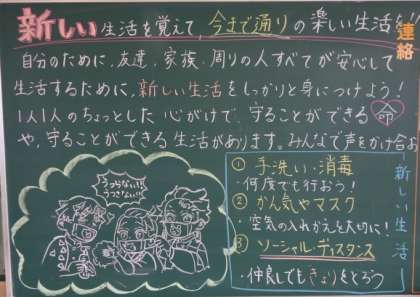 新しい生活を覚えて、今まで通りの楽しい生活を
連絡
自分のために、友達・家族・周りの人すべてが安心して
生活するために、新しい生活をしっかりと身につけよう!
1人1人のちょっとした心がけで、守ることができる命
や、守ることができる生活があります。みんなで声をかけ合お
新しい生活
① 手洗い・消毒
・何度でも行おう!
② かん気やマスク
・空気の入れかえを大切に!
③ ソーシャルディスタンス
・仲良しでもきょりをとろう
うつらない!!
うつさない!!